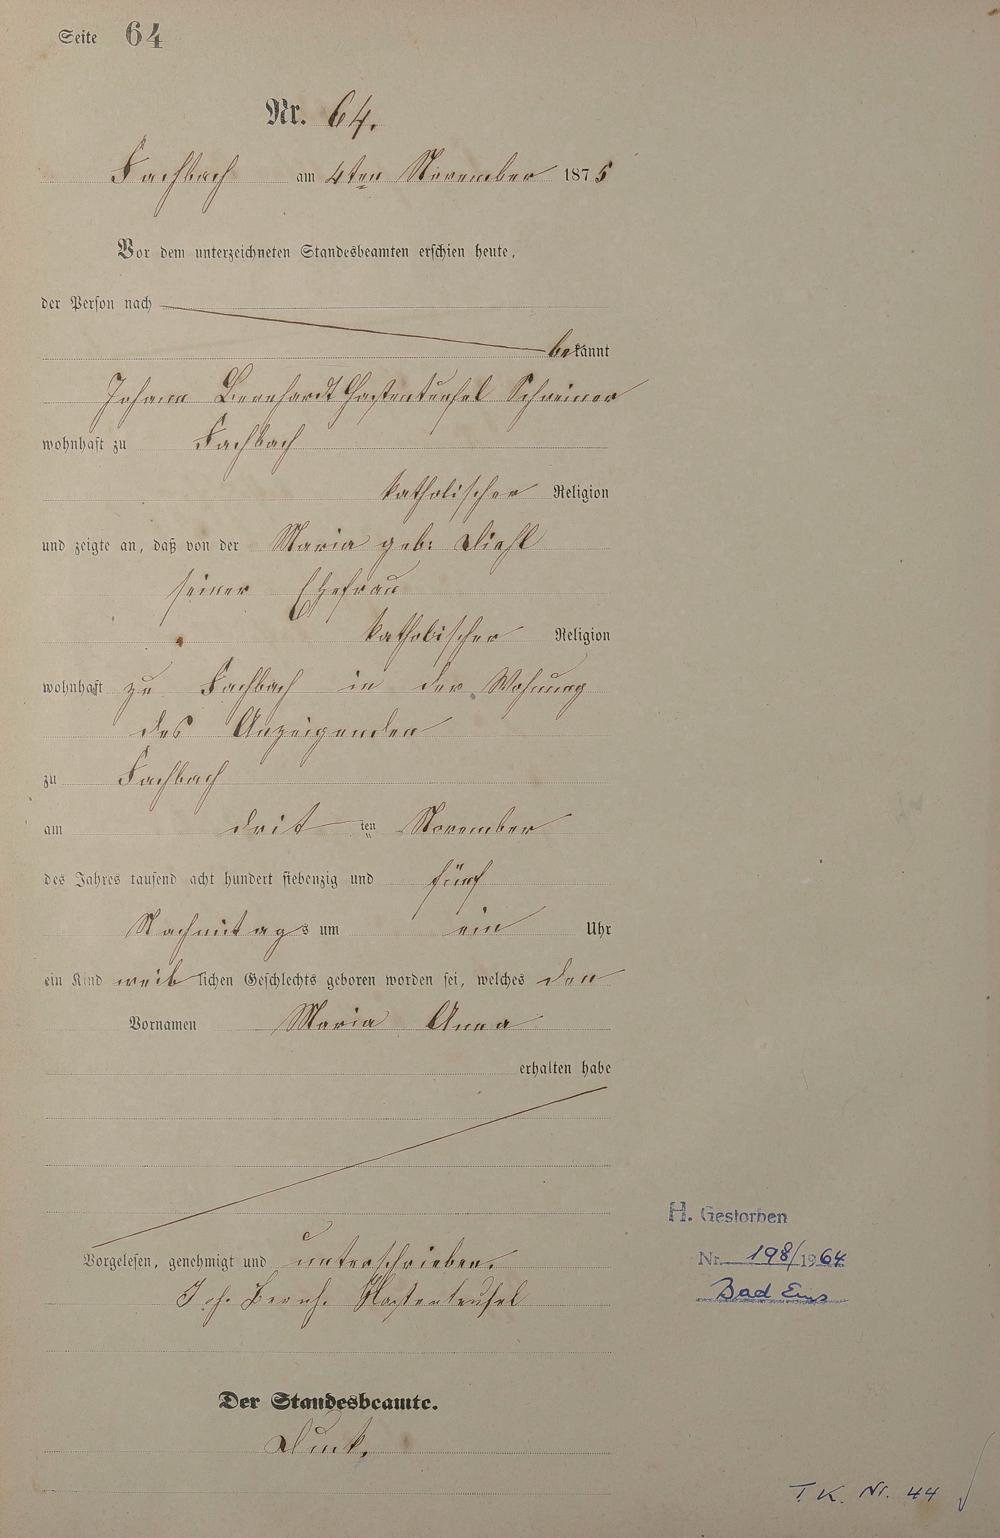 Seite 64
Nr. 64.
Fachbach am 4ten November 1875
Vor dem unterzeichneten Standesbeamten erschien heute,
der Person nach
bekannt
Johann Bernhardt Hastenteufel Schreiner
wohnhaft zu Fachbach
katholischer Religion
und zeigte an, daß von der Maria geb: Diehl
seiner Ehefrau
katholischer Religion
wohnhaft zu Fachbach in der Wohnung
des Anzeigenden
zu Fachbach
am dritten November
des Jahres tausend acht hundert siebenzig und fünf
Nachmitags um ein Uhr
ein Kind weiblichen Geschlechts geboren worden sei, welches den
Vornamen Maria Anna
erhalten habe
Vorgelesen, genehmigt und unterschrieben.
Joh. Bernh. Hastenteufel
Der Standesbeamte.
H. Gestorben
Nr. 198/1964
Bad Ems
T. K. Nr. 44